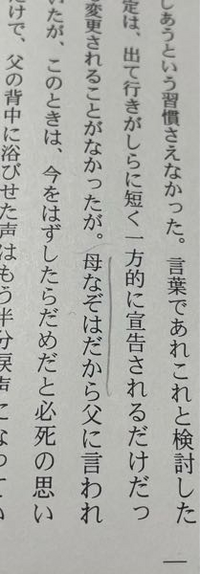 しあうという習慣さえなかった。言葉であれこれと検討した
定は、出て行きがしらに短く一方的に宣告されるだけだっ
変更されることがなかったが。母なぞはだから父に言われ
いたが、このときは、今をはずしたらだめだと必死の思い
だけで、父の背中に浴びせた声はもう半分涙声になってい